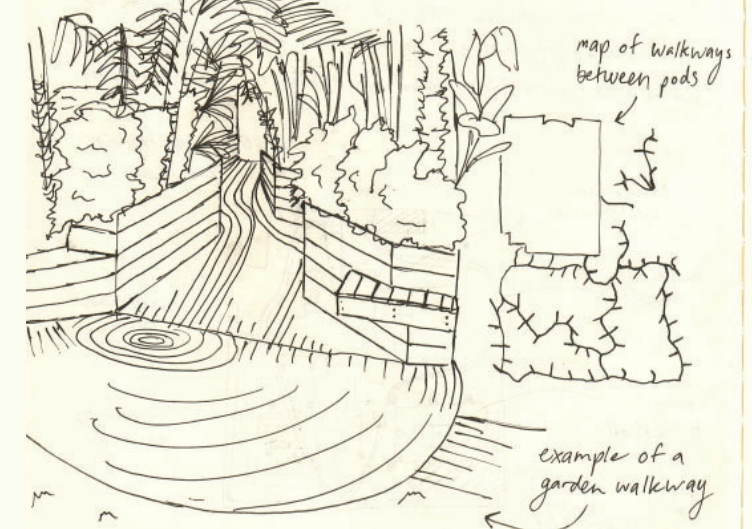 map of walkways
between pods
example of a
garden walkway